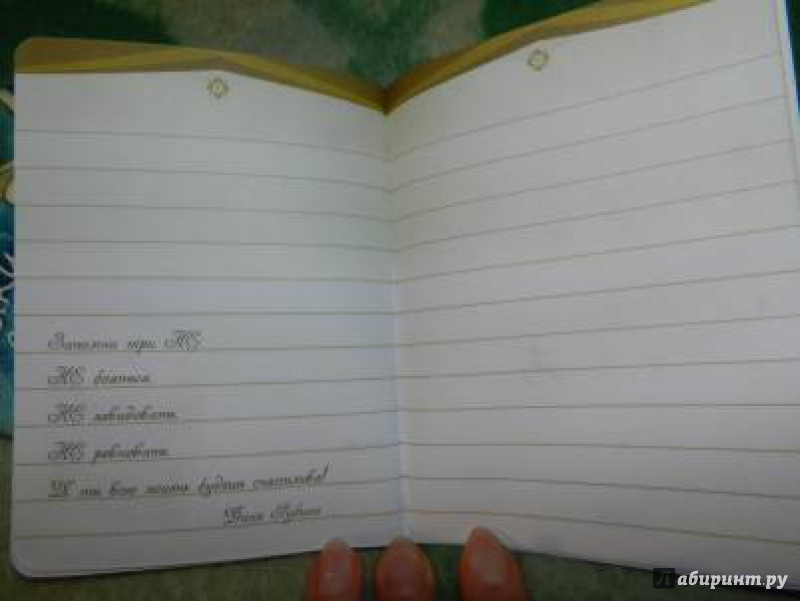 Запомни три НЕ:
НЕ бояться.
НЕ завидовать.
НЕ ревновать.
И ты всю жизнь будешь счастлива!
Дина Рубина
Лабиринт.ру